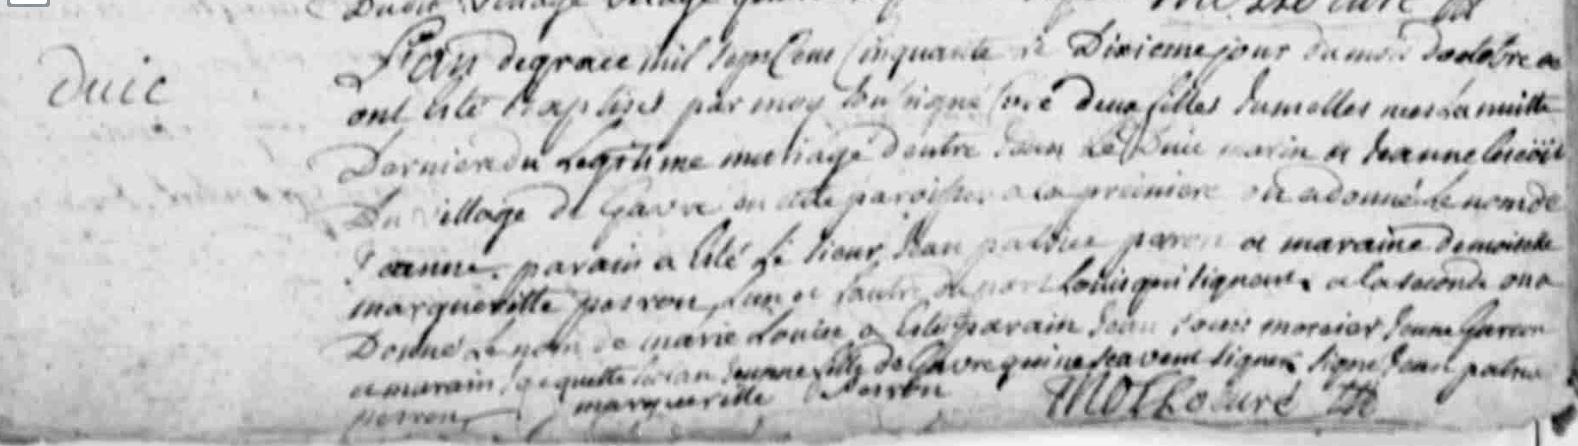 Dudit village
duic
L'an de grace mil sept Cent Cinquante le Dixieme jour du mois doctobre
ont esté Baptisés par moy soussigné Curé deux filles Jumelles nées La nuitte
Derniere du Legitime mariage d'entre Jean Le Duic marin et Jeanne
Du village de Gavre en cette paroisse a la premiere on a donné Le nom de
Jeanne. parain a esté Le sieur Jean patrice perron et maraine demoiselle
margueritte perron, Lun et Lautre du port Louis qui signent, a la seconde on a
Donné Le nom de marie Louise a esté parain Jean Louis mercier Jeune Garcon
et marain Jacquette Jeune fille de Gavre qui ne scavent signer signé Jean patrice
perron margueritte Perron